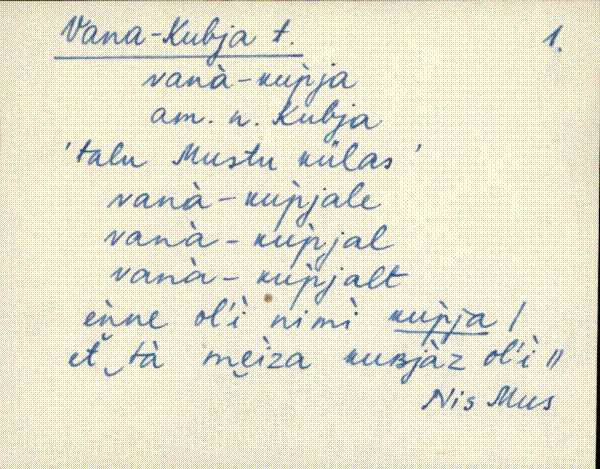 Vana-Kubja t. 1.
vanà-kup̀ja
am. n. Kubja
'talu Mustu külas'
vanà-kup̀jale
vanà-kup̀jal
vanà-kup̀jalt
ènne ol'ì nimì kup̀ja /
et̆ tà mei̯za kuʙjàz ol'ì //
Nis Mus